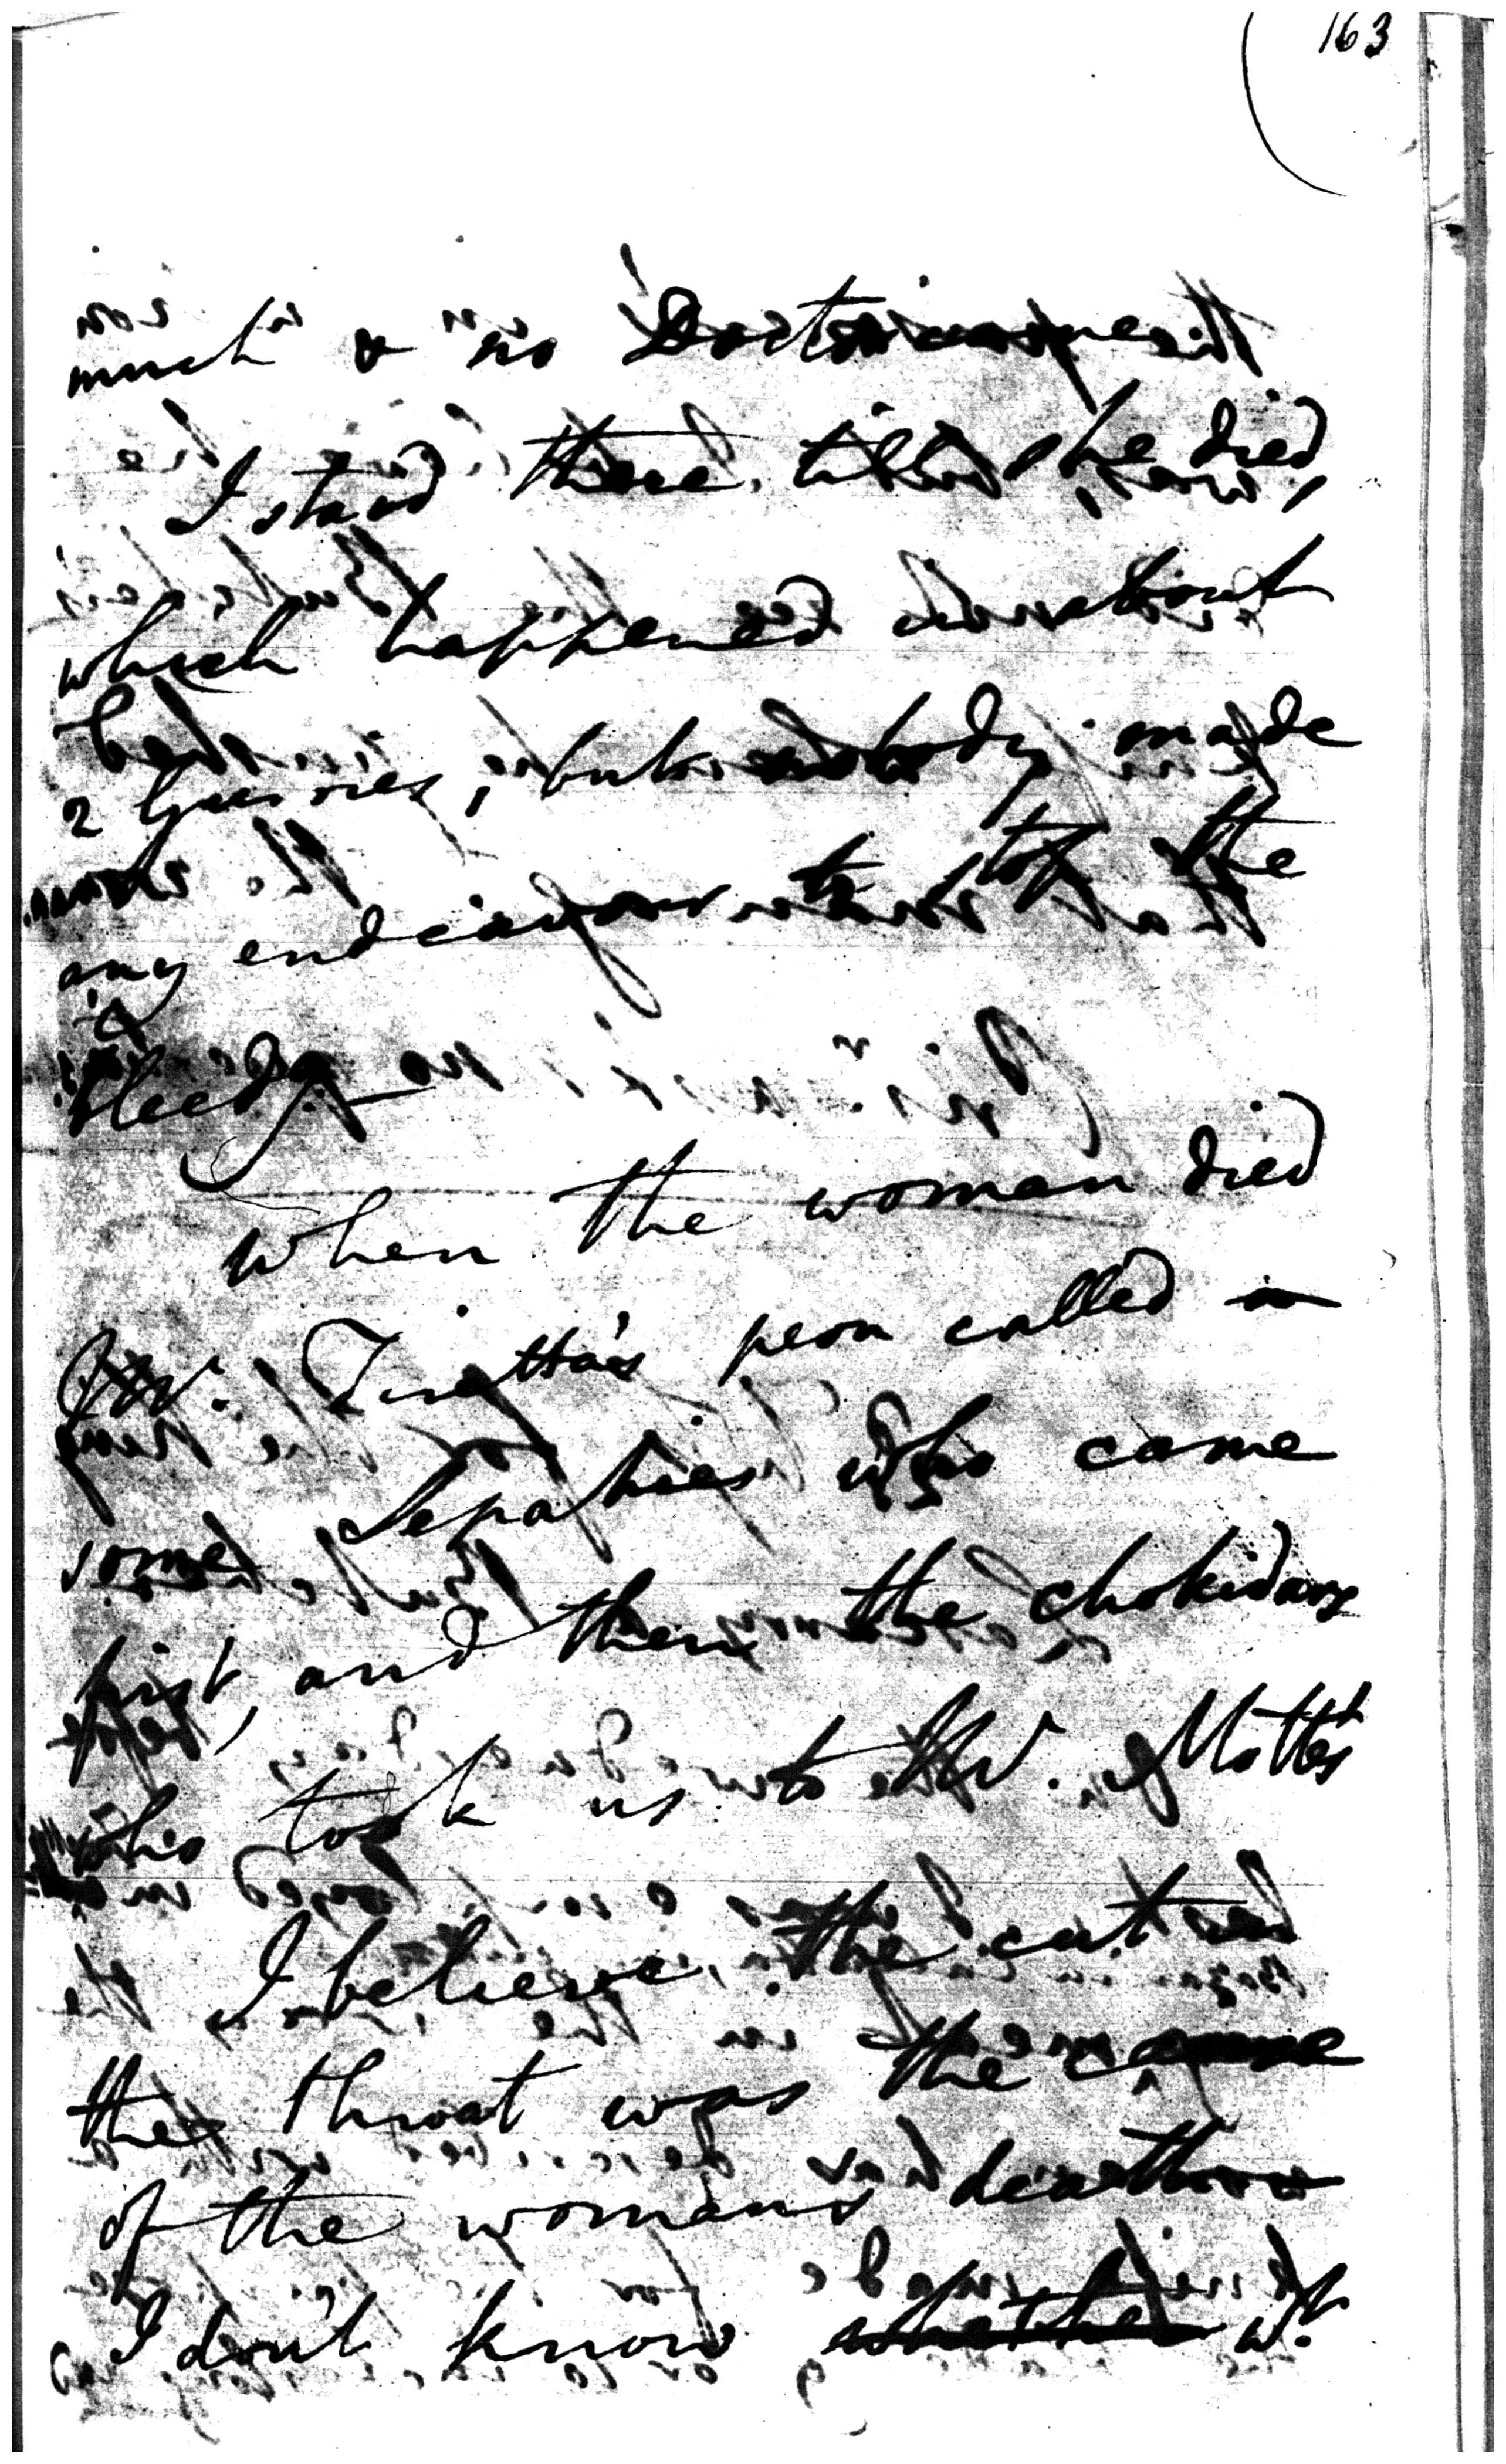 163
much & no Doctor came
I stood there till she died,
which happened in about
2 Gurries, but nobody made
any endeavour to stop the
bleedg
When the woman died
Mr. Tiretta's peon called in
some Sepahies who came
first, and then the chokidars
who took us to Mr. Motts
I believe the cut in
the throat was the cause
of the womans death
I don't know whether wt.